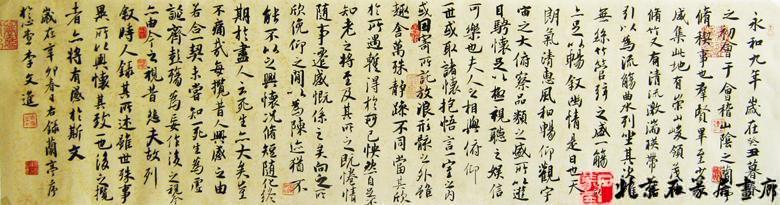 永和九年歲在癸丑暮春
之初會于會稽山陰之蘭亭
脩稧事也羣賢畢至少長
咸集此地有崇山峻領茂林
脩竹又有清流激湍暎帶
引以為流觴曲水列坐其次
無絲竹管弦之盛一觴
上足以暢叙幽情是日也天
朗氣清惠風和暢仰觀宇
宙之大俯察品類之盛所以遊
目騁懷足以極視聽之娛信
可樂也夫人之相與俯仰
一世或取諸懷抱悟言一室之內
或因寄所託放浪形骸之外雖
趣舍萬殊靜躁不同當其欣
於所遇暫得於己快然自足不
知老之將至及其所之既惓情
隨事遷感慨係之矣向之所
欣俛仰之間以為陳迹猶不
能不以之興懷況脩短隨化終
期於盡古人云死生亦大矣豈
不痛哉每攬昔人興感之由
若合一契未嘗知死生為虛
誕齊彭殤為妄作後之視今
亦由今之視昔悲夫故列
叙時人錄其所述雖世殊事
異所以興懷其致一也後之攬
者亦將有感於斯文
歲在辛卯春日右錄蘭亭序
李文進